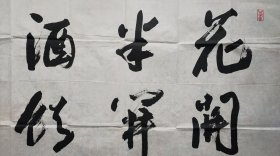 花開
半開
酒飲